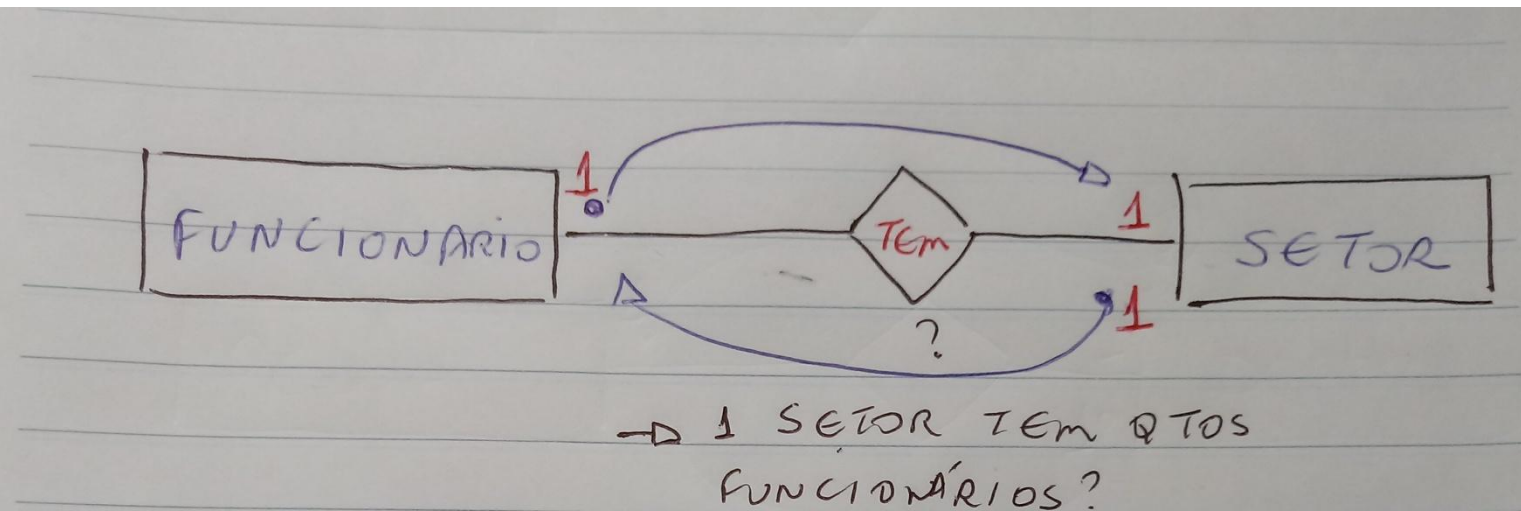 1
1
FUNCIONARIO
TEM
SETOR
1
?
→ 1 SETOR TEM QTOS
FUNCIONÁRIOS?